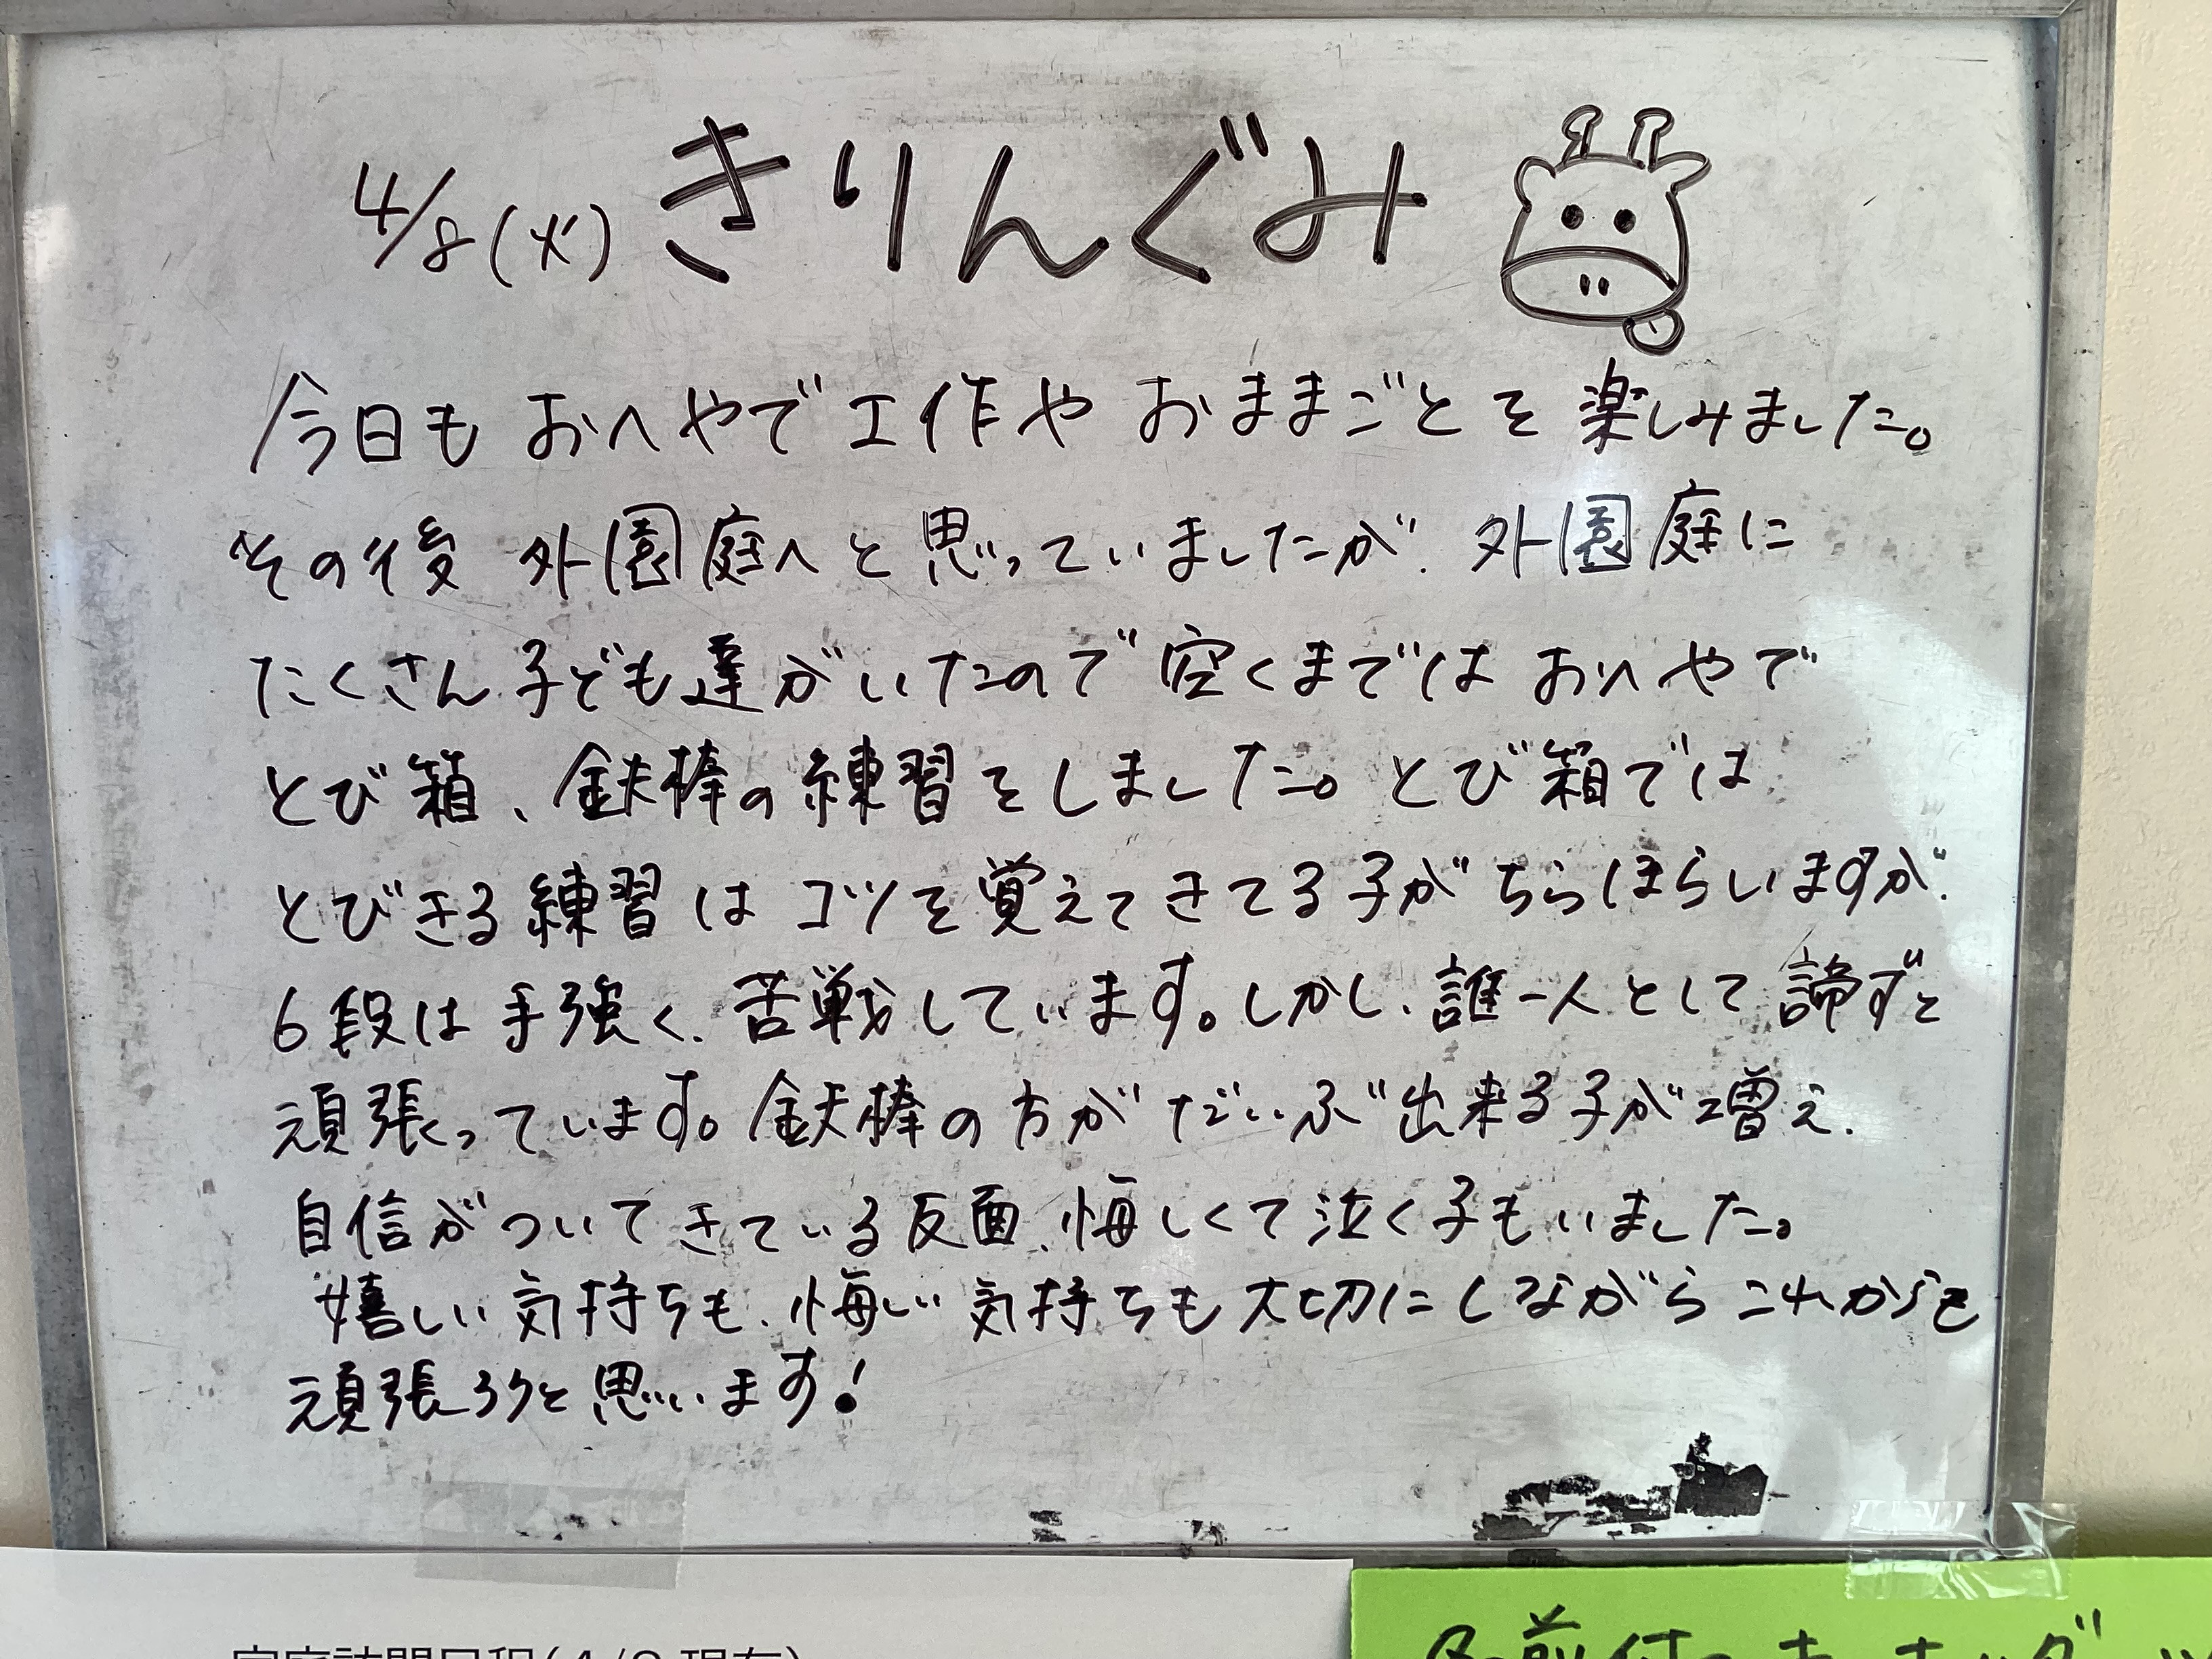 4/8(火) きりんぐみ
今日も おへやで工作や おままごとを 楽しみました。
その後 外園庭へと思っていましたが、外園庭に
たくさん子ども達がいたので空くまでは おへやで
とび箱、鉄棒の練習をしました。とび箱では
とびきる練習はコツを覚えてきてる子がちらほらいますが、
6段は手強く、苦戦しています。しかし、誰一人として諦ずと
頑張っています。鉄棒の方がだいぶ出来る子が増え、
自信がついてきている反面、悔しくて泣く子もいました。
嬉しい気持ちも、悔しい気持ちも大切にしながらこれからも
頑張ろうと思います!
家庭訪問日程(4/8現在)